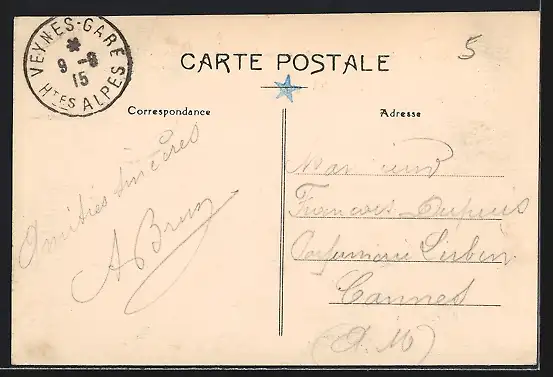 VEYNES-GARE
9 -8
15
HTES ALPES
5
CARTE POSTALE
Correspondance
Adresse
Amitiés sincères
A Brun
Monsieur
François Dupuis
Parfumerie Lubin
Cannes
(A. M)